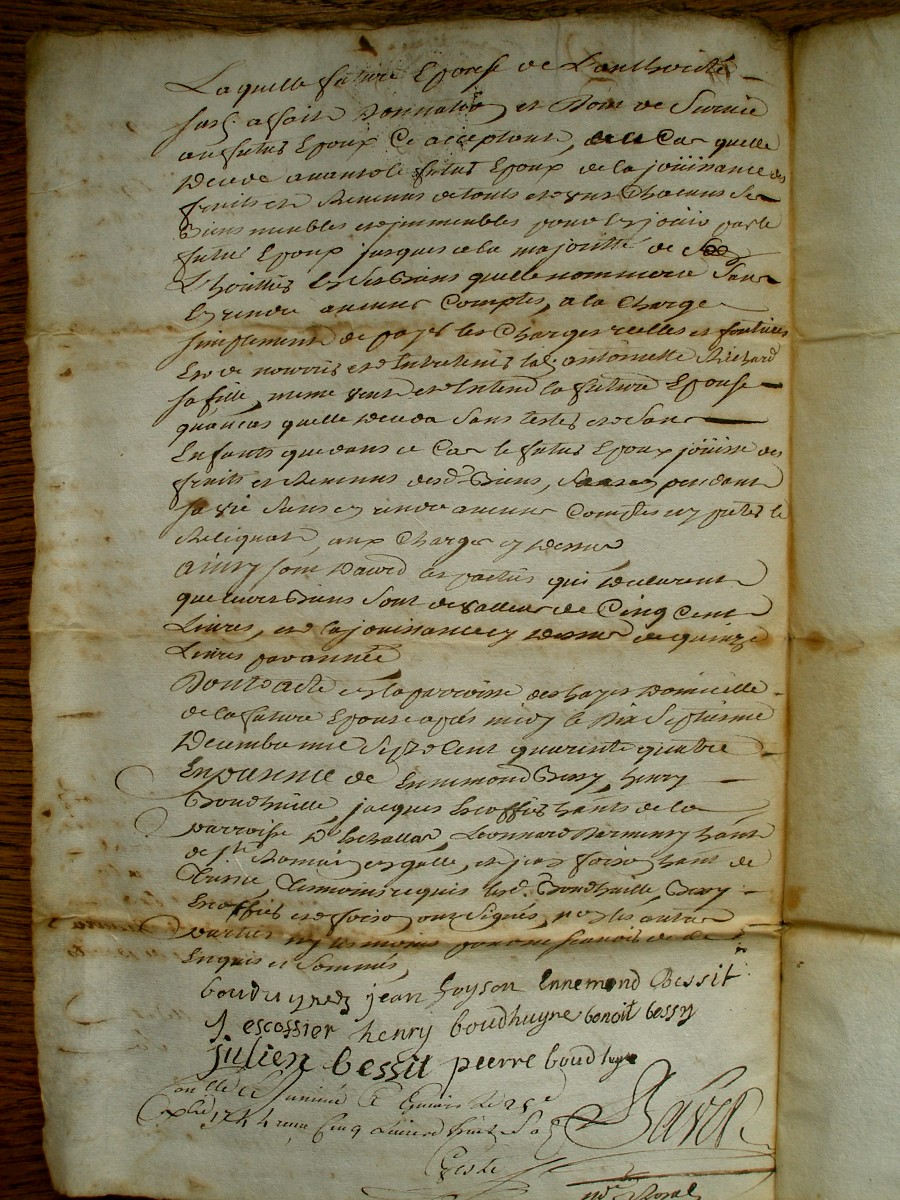 Laquelle future Epouse de L'authorité
susd. a fait Donnation et Don de Survie
au futur Epoux Ce acceptant, au Cas quelle
Decede avant le futur Epoux de la joüissance des
fruits et Revenus de touts et uns Chacuns Ses
Biens meubles et immeubles pour en jouir par le
futur Epoux jusques a la majorité de
L'héritier de Ses Biens quelle nommera Sans
En rendre aucuns Comptes, a la Charge
simplement de payer les Charges réelles et foncières
Et de nourrir et Entretenir lad. antoinette Richard
sa fille, meme veut et Entend la future Epouse
qu'au cas quelle Deceda Sans tester et Sans
Enfants que dans ce Cas le futur Epoux joüisse des
fruits et Revenus desd. Biens, pendant
sa vie Sans en rendre aucuns Comptes ny preter le
Reliquat, aux Charges cy Dessus
ainsy sont Daccord les parties qui Declarent
que leurs Biens Sont de valleur de Cinq Cent
Livres, et la jouissance cy Dessus de quinze
Livres par année
Dont acte en la parroisse des hayes Domicille
de la future Epouse aprés midy le Dix Septieme
Decembre mil Sept Cent quarante quatre
En presence de Ennemond Bessy, henry
Boudhuille, jacques Escoffier hants de la
parroise D'echallas, Leonnard hant
de st. Romain en galle, et jean foison hant de
, temoins requis lesd. Boudhuille, Bessy
Escoffier et foison ont Signés, non les autres
parties ny temoins pour ne sçavoir de ce
Enquis et Sommés,
jean foyson Ennemond Bessit
J escossier henry boudhuyne benoit bessy
julien bessit pierre boud
Con lé a le
1744 Cinq Livres huit
Reste
Royal